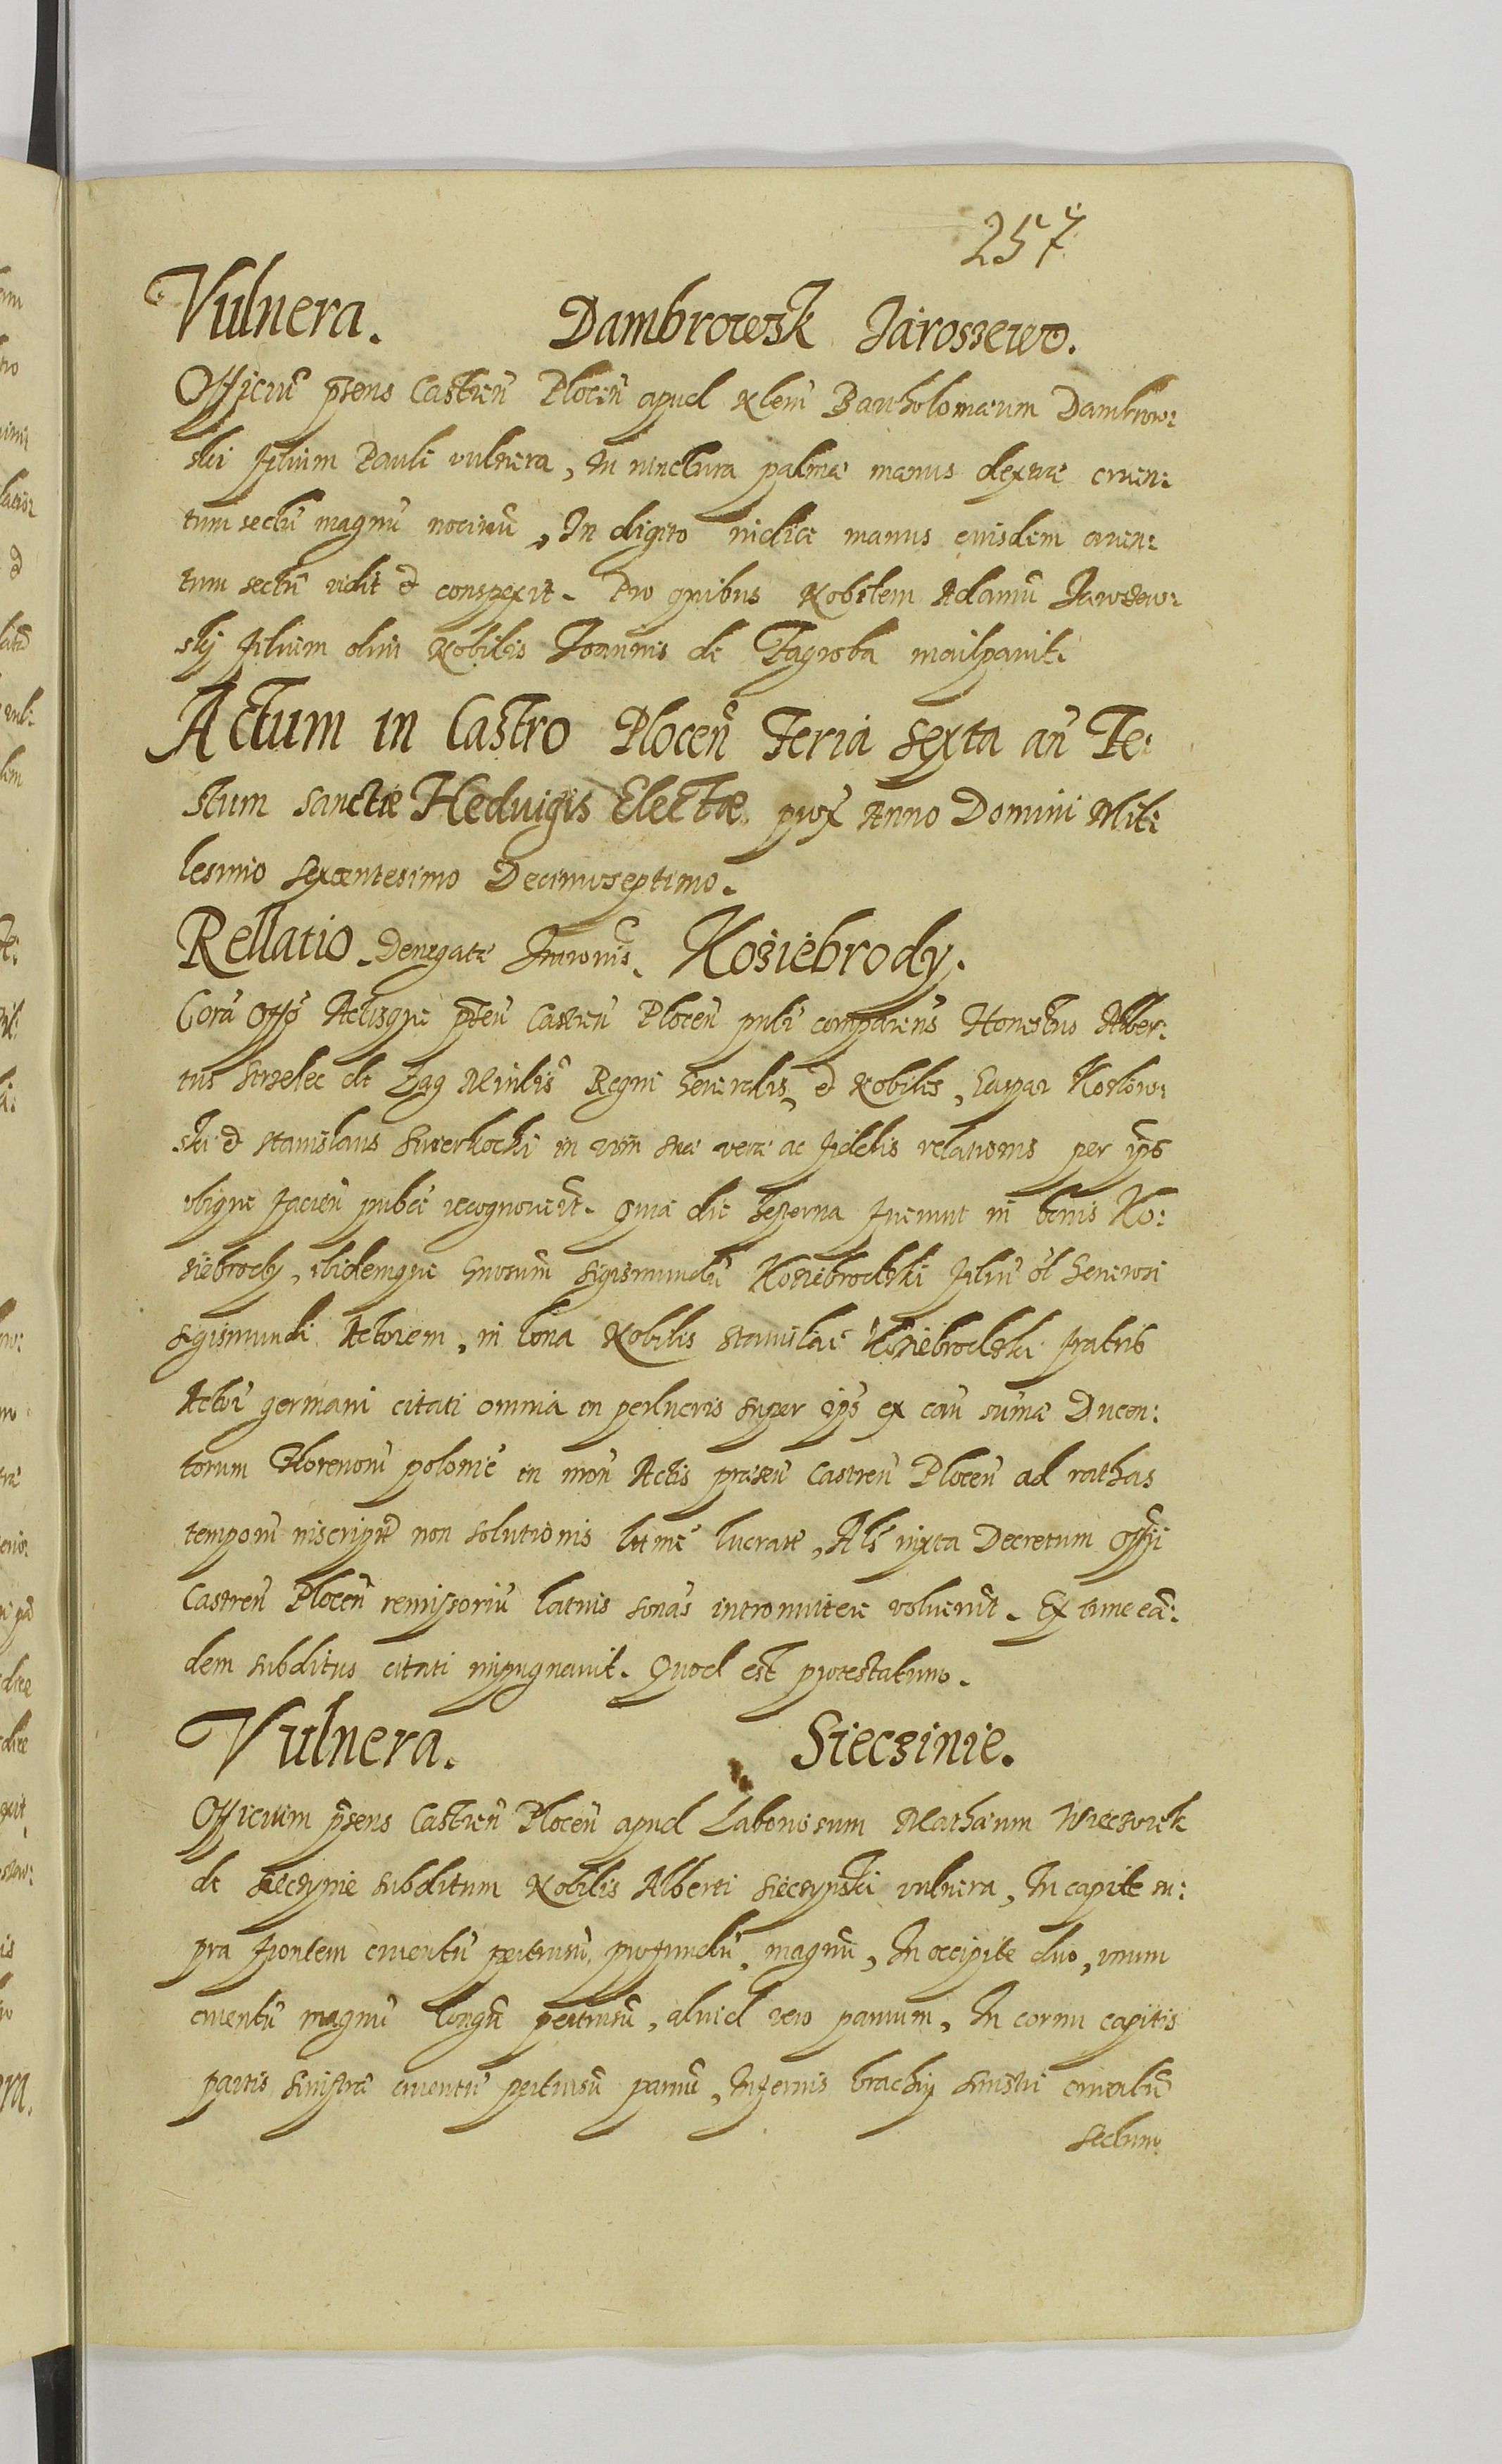 257
Vulnera. Dambrowsk Jarossewo.
Officiũ p̃sens Castreñ Ploceñ apud Nłem Bartholomæum Dambrow:
ski filium Pauli vulnera, In iunctura palmæ manus dextræ cruen:
tum sectũ magnũ nociuũ, In digito indice manus eiusdem cruen:
tum sectũ vidit et conspexit. Pro quibus Nobilem Adamũ Jarosew:
skj filium olim Nobilis Joannis de Zagroba inculpauit.
Actum in Castro Ploceñ Feria sexta añ Fe:
stum sanctæ Heduigis Electæ prox Anno Domini Mil:
lesimo sexcentesimo Decimoseptimo.
Rellatio Denegatæ Intrõnis. Kosiebrody.
Corã Offõ Actisque p̃ñ Castreñ Ploceñ publ comparens Honestus Alber:
tus Strzelec de Zag Minl̃is Regni Generalis, et Nobiles, Caspar Kozlow:
ski et Stanislaus Swierkocki in vim suæ veræ ac fidelis relationis per ip̃s
vbique facieñ publ̃e recognouerũt. Quia die hesterna fuerunt in bonis Ko:
siebrody, ibidemque Gñosum Sigismundũ Kosiebrodzki filiũ ol Generosi
Sigismundi Actorem, in bona Nobilis Stanislai Kosiebrodzki fratris
Actoris germani citati omnia in perlucris super ip̃s ex cañ sum̃æ Ducen:
torum Florenorũ polonic̃ in moñ Actis præseñ Castreñ Ploceñ ad rathas
temporũ inscriptæ non solutionis lit̃me lucratæ, Als iuxta Decretum Offij
Castreñ Ploceñ remissoriũ latius sonãs intromittere voluerũt. Ex tunc eã:
dem subditus citati inpugnauit. Quod est protestatum.
Vulnera. Sieczinie.
Officium p̃sens Castreñ Ploceñ apud Laboriosum Mathæum Wieczorek
de Sieczynie subditum Nobilis Alberti Sieczynski vulnera, In capite su:
pra frontem cruentũ pertusũ, profundũ, magnũ, In occipite duo, vnum
cruentũ magnũ longũ pertusũ, aliud vero paruum, In cornu capitis
partis sinistræ cruentũ pertusũ paruũ, Inferius brachij sinistri cruentũ
sectum